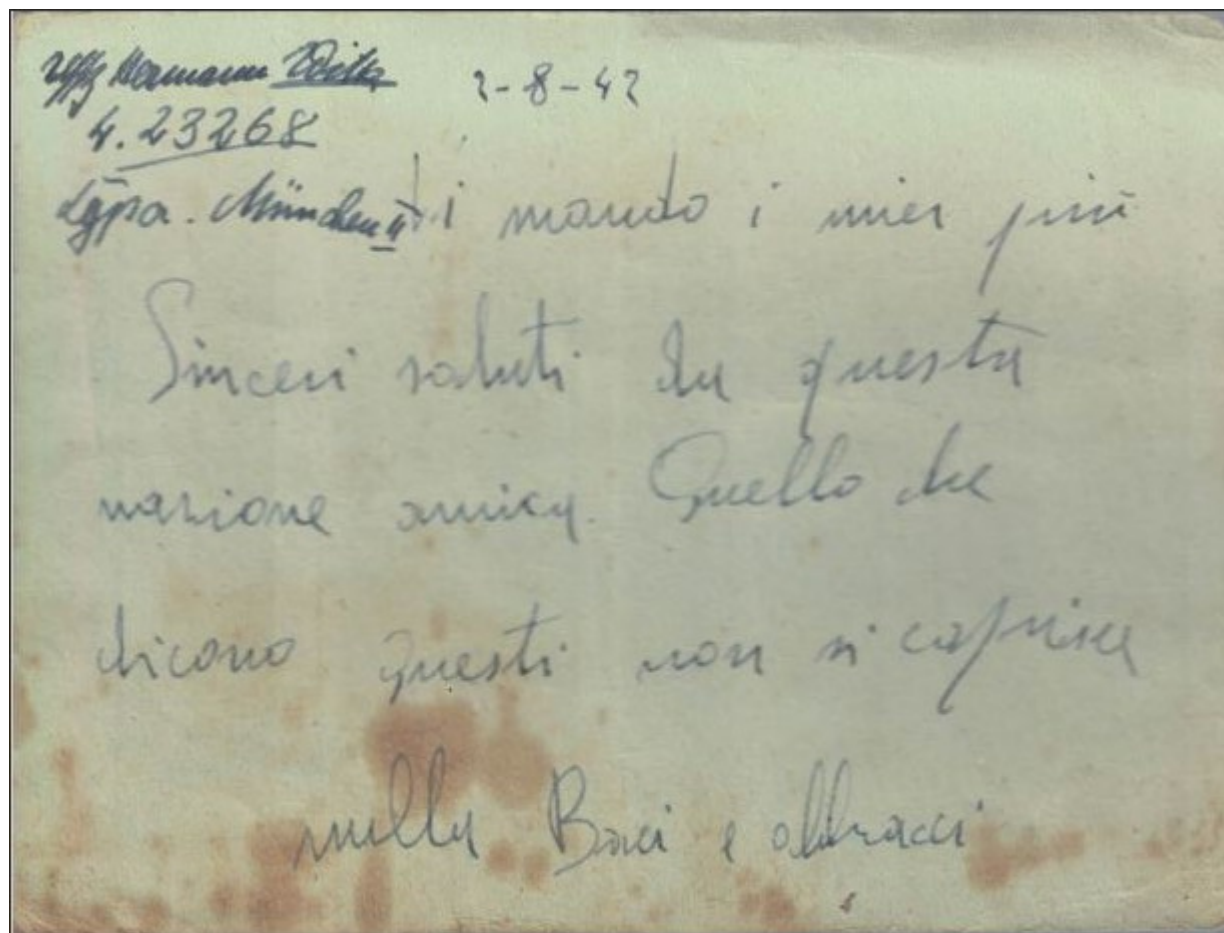 Uffz Hermann
2-8-42
4.23268
Lgpa. München II
ti mando i miei più
Sinceri saluti da questa
nazione amica. Quello che
dicono questi non si capisce
nulla Baci e abbracci